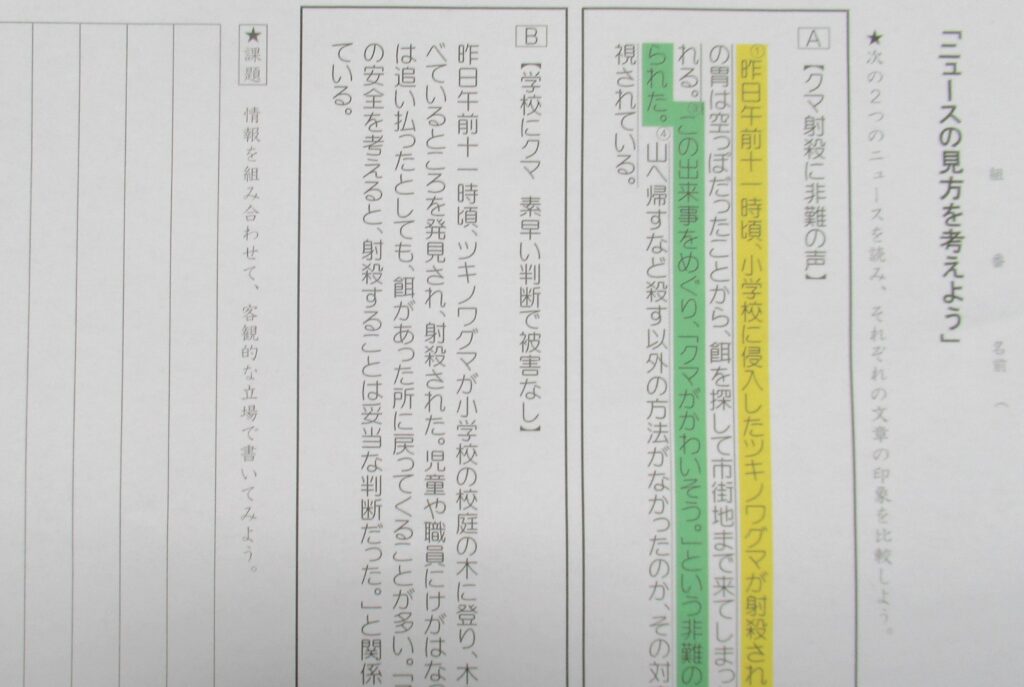 組　番　名前（
「ニュースの見方を考えよう」
★次の２つのニュースを読み、それぞれの文章の印象を比較しよう。
A【クマ射殺に非難の声】
①昨日午前十一時頃、小学校に侵入したツキノワグマが射殺され
の胃は空っぽだったことから、餌を探して市街地まで来てしまっ
れる。③この出来事をめぐり、「クマがかわいそう。」という非難の
られた。④山へ帰すなど殺す以外の方法がなかったのか、その対
視されている。
B【学校にクマ　素早い判断で被害なし】
昨日午前十一時頃、ツキノワグマが小学校の校庭の木に登り、木
べているところを発見され、射殺された。児童や職員にけがはな
は追い払ったとしても、餌があった所に戻ってくることが多い。「
の安全を考えると、射殺することは妥当な判断だった。」と関係
ている。
★課題　情報を組み合わせて、客観的な立場で書いてみよう。